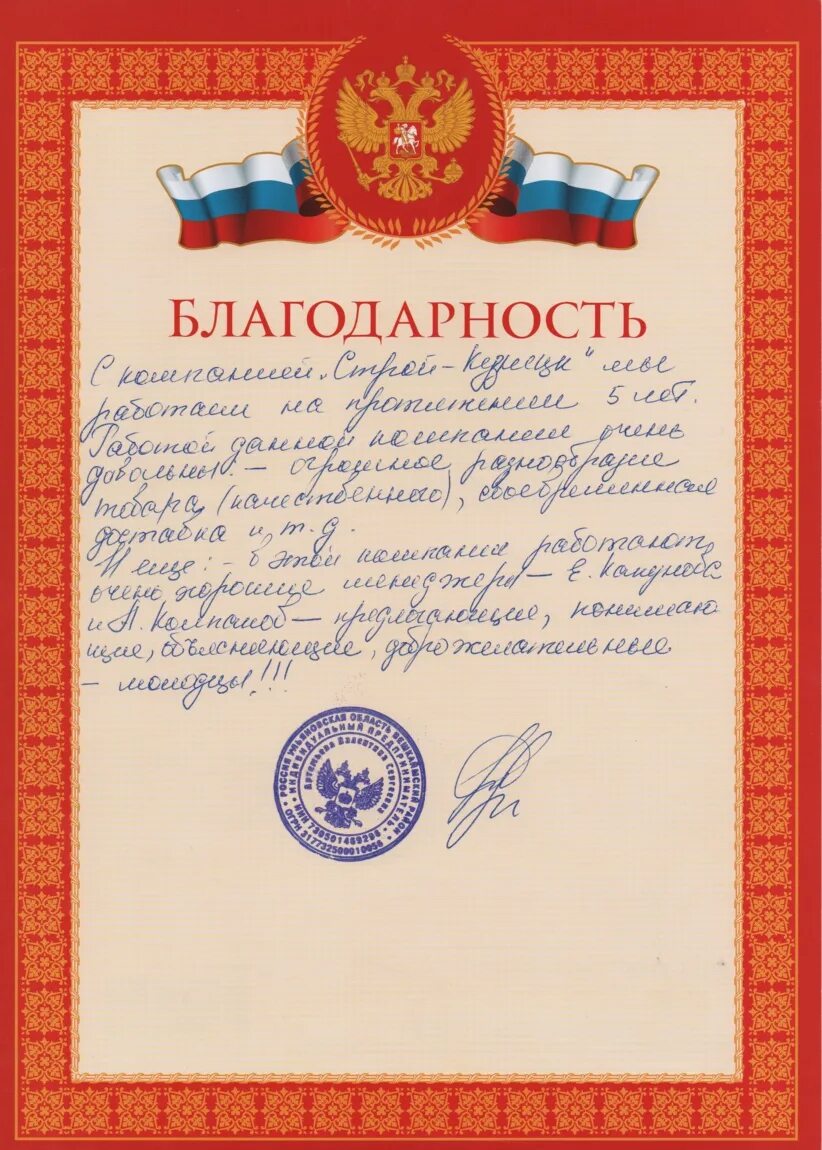 БЛАГОДАРНОСТЬ
С компанией „Строй- " мы
работаем на протяжении 5 лет.
Работой данной компании очень
довольны: – огромное разнообразие
товара (качественного), своевременная
доставка и т.д.
И еще: – в этой компании работают
очень хорошие менеджеры – Е.
и А. – предлагающие, понимаю
щие, объясняющие, доброжелательные
– молодцы!!!
РОССИЯ УЛЬЯНОВСКАЯ ОБЛАСТЬ ВЕШКАЙМСКИЙ РАЙОН
ИНДИВИДУАЛЬНЫЙ ПРЕДПРИНИМАТЕЛЬ
Валентина Сергеевна
ИНН
ОГРН